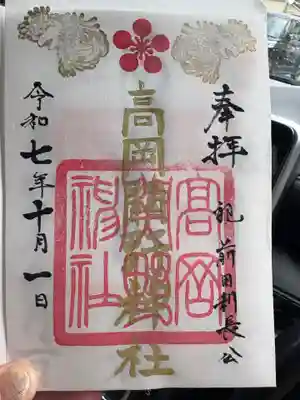 奉拝
祀 前田利長公
高岡關野神社
高岡
關野
神社
令和七年十月一日